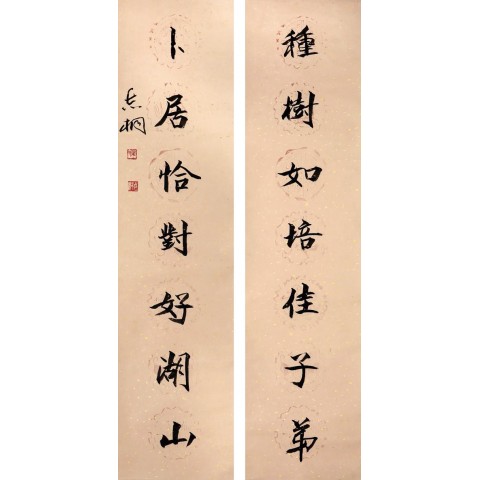 種樹如培佳子弟
卜居恰對好湖山
志桐